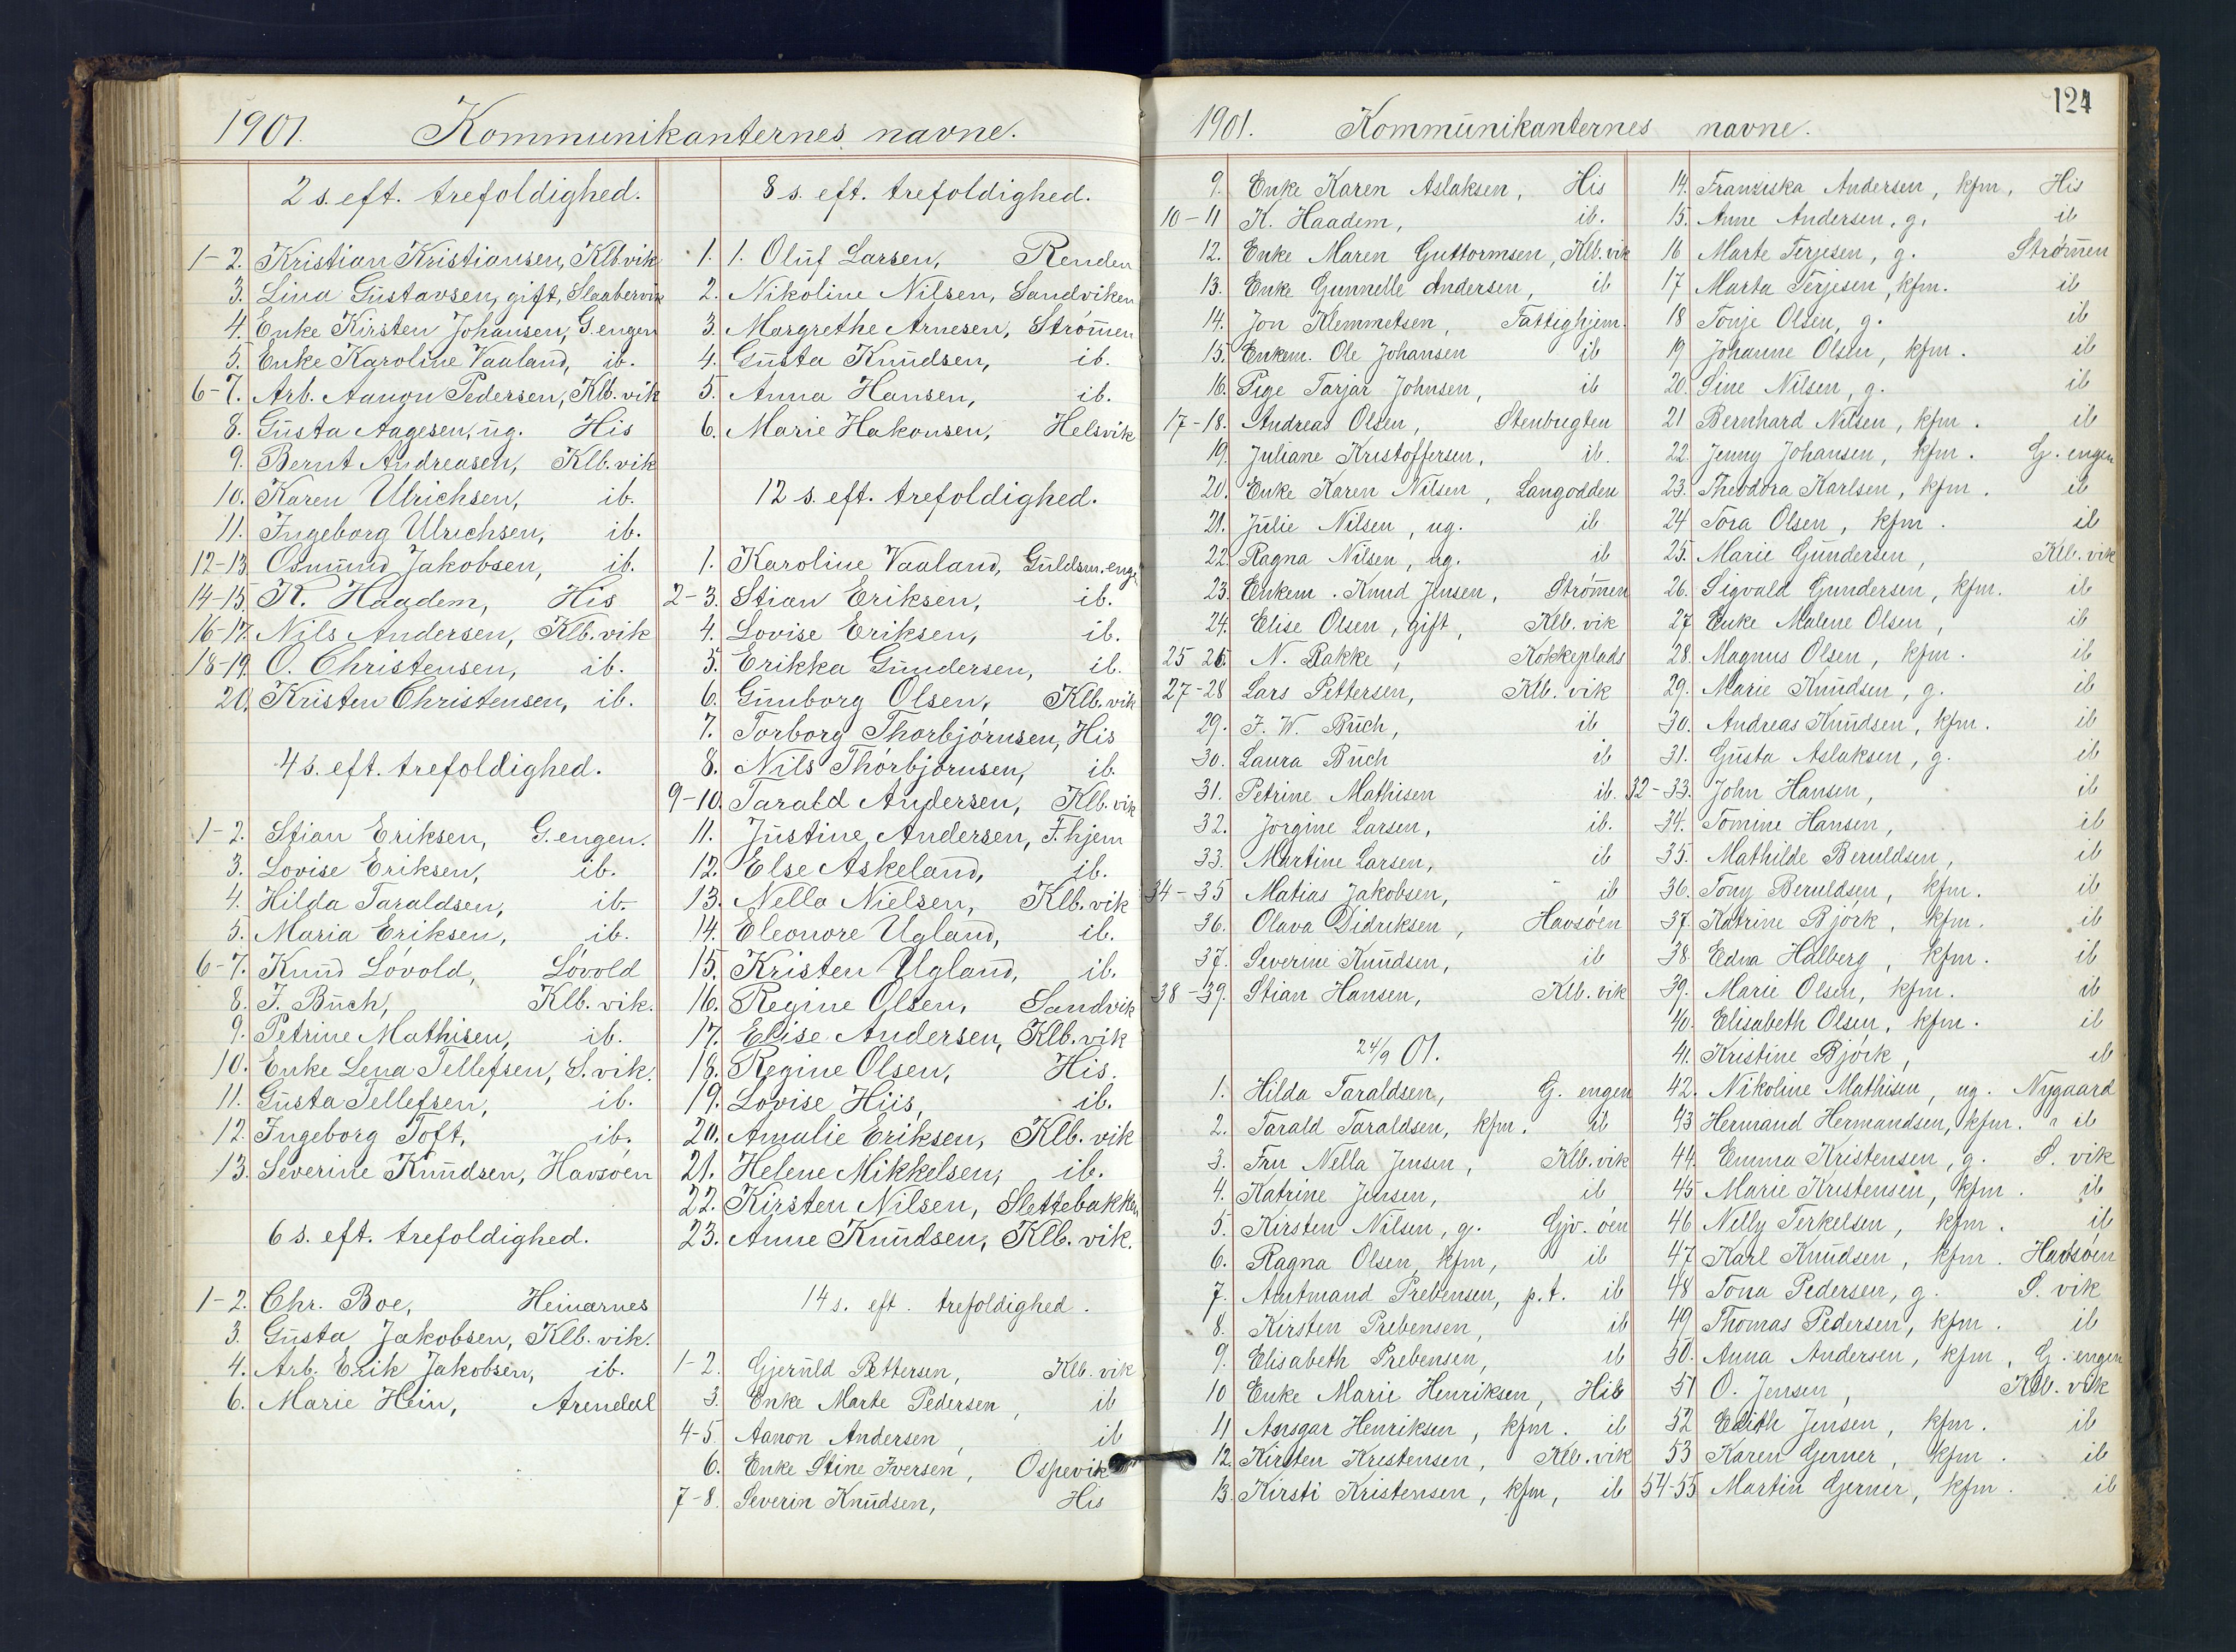 1901. Kommunikanternes navne.
2 s. eft. trefoldighed.
1-2. Kristian Kristiansen, Klb.vik
3. Lina Gustavsen, gift, Slaabervik
4. Enke Kirsten Johansen, G.engen
5. Enke Karoline Vaaland, ib.
6-7. Arb. Aanon Pedersen, Klb.vik
8. Gusta Aagesen, ug. His
9. Bernt Andreasen, Klb.vik
10. Karen Ulrichsen, ib.
11. Ingeborg Ulrichsen, ib.
12-13 Osmund Jakobsen, ib.
14-15 K. Haadem, His
16-17. Nils Andersen, Klb.vik
18-19. O. Christensen, ib.
20. Kristen Christensen, ib.
4 s. eft. trefoldighed.
1-2. Stian Eriksen, G.engen.
3. Lovise Eriksen, ib.
4. Hilda Taraldsen, ib.
5. Maria Eriksen, ib.
6-7. Knud Lövold, Lövold
8. F. Buch, Klb.vik.
9. Petrine Mathisen, ib.
10. Enke Lena Tellefsen, S.vik.
11. Gusta Tellefsen, ib.
12. Ingeborg Toft, ib.
13. Severine Knudsen, Havsöen
6 s. eft. trefoldighed.
1-2. Chr. Boe, Heinarnes
3. Gusta Jakobsen, Klb.vik.
4. Arb. Erik Jakobsen, ib.
6. Marie Hein, Arendal
8 s. eft. trefoldighed.
1. 1. Oluf Larsen, Renden
2. Nikoline Nilsen, Sandviken
3. Margrethe Arnesen, Strömen
4. Gusta Knudsen, ib.
5. Anna Hansen, ib.
6. Marie Hakonsen, Helsvik
12 s. eft. trefoldighed.
1. Karoline Vaaland, Guldsm.eng
2-3. Stian Eriksen, ib.
4. Lovise Eriksen, ib.
5. Erikka Gundersen, ib.
6. Gunborg Olsen, Klb.vik
7. Torborg Thorbjörnsen, His
8. Nils Thorbjörnsen, ib.
9-10. Tarald Andersen, Klb.vik
11. Justine Andersen, F.hjem
12. Else Askeland, ib.
13. Nella Nielsen, Klb.vik
14. Eleonore Ugland, ib.
15. Kristen Ugland, ib.
16. Regine Olsen, Sandvik
17. Elise Andersen, Klb.vik
18. Regine Olsen, His.
19. Lovise Hiis, ib.
20. Amalie Eriksen, Klb.vik
21. Helene Mikkelsen, ib.
22. Kirsten Nilsen, Slettebakken
23. Anne Knudsen, Klb.vik.
14 s. eft. trefoldighed.
1-2. Gjeruld Pettersen, Klb.vik
3. Enke Marte Pedersen, ib
4-5. Aanon Andersen, ib
6. Enke Stine Iversen, Ospevik
7-8. Severin Knudsen, His
124
1901. Kommunikanternes navne.
9. Enke Karen Aslaksen, His
10-11 K. Haadem, ib.
12. Enke Maren Guttormsen, Klb.vik
13. Enke Gunnelle Andersen, ib
14. Jon Klemmetsen, Fattighjem.
15. Enkem. Ole Johansen ib
16. Pige Tarjar Johnsen, ib
17-18. Andreas Olsen, Stenbugten
19. Juliane Kristoffersen, ib.
20. Enke Karen Nilsen, Langodden
21. Julie Nilsen, ug. ib
22. Ragna Nilsen, ug. ib
23. Enkem. Knud Jensen, Strömen
24. Elise Olsen, gift, Klb.vik
25-26. N. Bakke, Kokkeplads
27-28 Lars Pettersen, Klb.vik
29. F. W. Buch, ib
30. Laura Buch ib
31. Petrine Mathisen ib.
32. Jörgine Larsen, ib.
33. Martine Larsen, ib
34-35 Matias Jakobsen, ib
36. Olava Didriksen, Havsöen
37. Severine Knudsen, ib
38-39. Stian Hansen, Klb.vik
24/9 01.
1. Hilda Taraldsen, G. engen
2. Tarald Taraldsen, kfm. ib
3. Fru Nella Jensen, Klb.vik
4. Katrine Jensen, ib
5. Kirsten Nilsen, g. Gjv.öen
6. Ragna Olsen, kfm, ib
7. Amtmand Prebensen, p.t. ib
8. Kirsten Prebensen, ib
9. Elisabeth Prebensen, ib
10 Enke Marie Henriksen, His
11 Ansgar Henriksen, kfm. ib
12. Kirsten Kristensen, Klb.vik
13. Kirsti Kristensen, kfm, ib
14. Franziska Andersen, kfm, His
15. Anne Andersen, g. ib
16 Marte Terjesen, g. Strömen
17 Marta Terjesen, kfm. ib
18 Tonje Olsen, g. ib
19 Johanne Olsen, kfm. ib
20. Sine Nilsen, g. ib
21 Bernhard Nilsen, kfm. ib
22 Jenny Johansen, kfm. G.engen
23. Theodora Karlsen, kfm. ib
24 Tora Olsen, kfm. ib
25. Marie Gundersen, Klb.vik
26. Sigvald Gundersen, kfm. ib
27. Enke Malene Olsen, ib
28. Magnus Olsen, kfm. ib
29. Marie Knudsen, g. ib
30. Andreas Knudsen, kfm. ib
31. Gusta Aslaksen, g. ib
32-33. John Hansen, ib
34. Tomine Hansen, ib
35. Mathilde Beruldsen, ib
36. Tony Beruldsen, kfm. ib
37. Katrine Björk, kfm. ib
38. Edna Halberg, kfm. ib
39. Marie Olsen, kfm. ib
40. Elisabeth Olsen, kfm. ib
41. Kristine Björk, ib
42. Nikoline Mathisen, ug. Nygaard
43 Hermand Hermandsen, kfm. ib
44. Emma Kristensen, g. S. vik
45 Marie Kristensen, kfm. ib
46 Nelly Terkelsen, kfm. ib
47 Karl Knudsen, kfm. Havsöen
48 Tona Pedersen, g. S. vik
49 Thomas Pedersen, kfm. ib
50. Anna Andersen, kfm, G.engen
51 O. Jensen, Klb.vik
52 Edith Jensen, kfm. ib
53 Karen Gerner, kfm. ib
54-55 Martin Gerner, kfm. ib